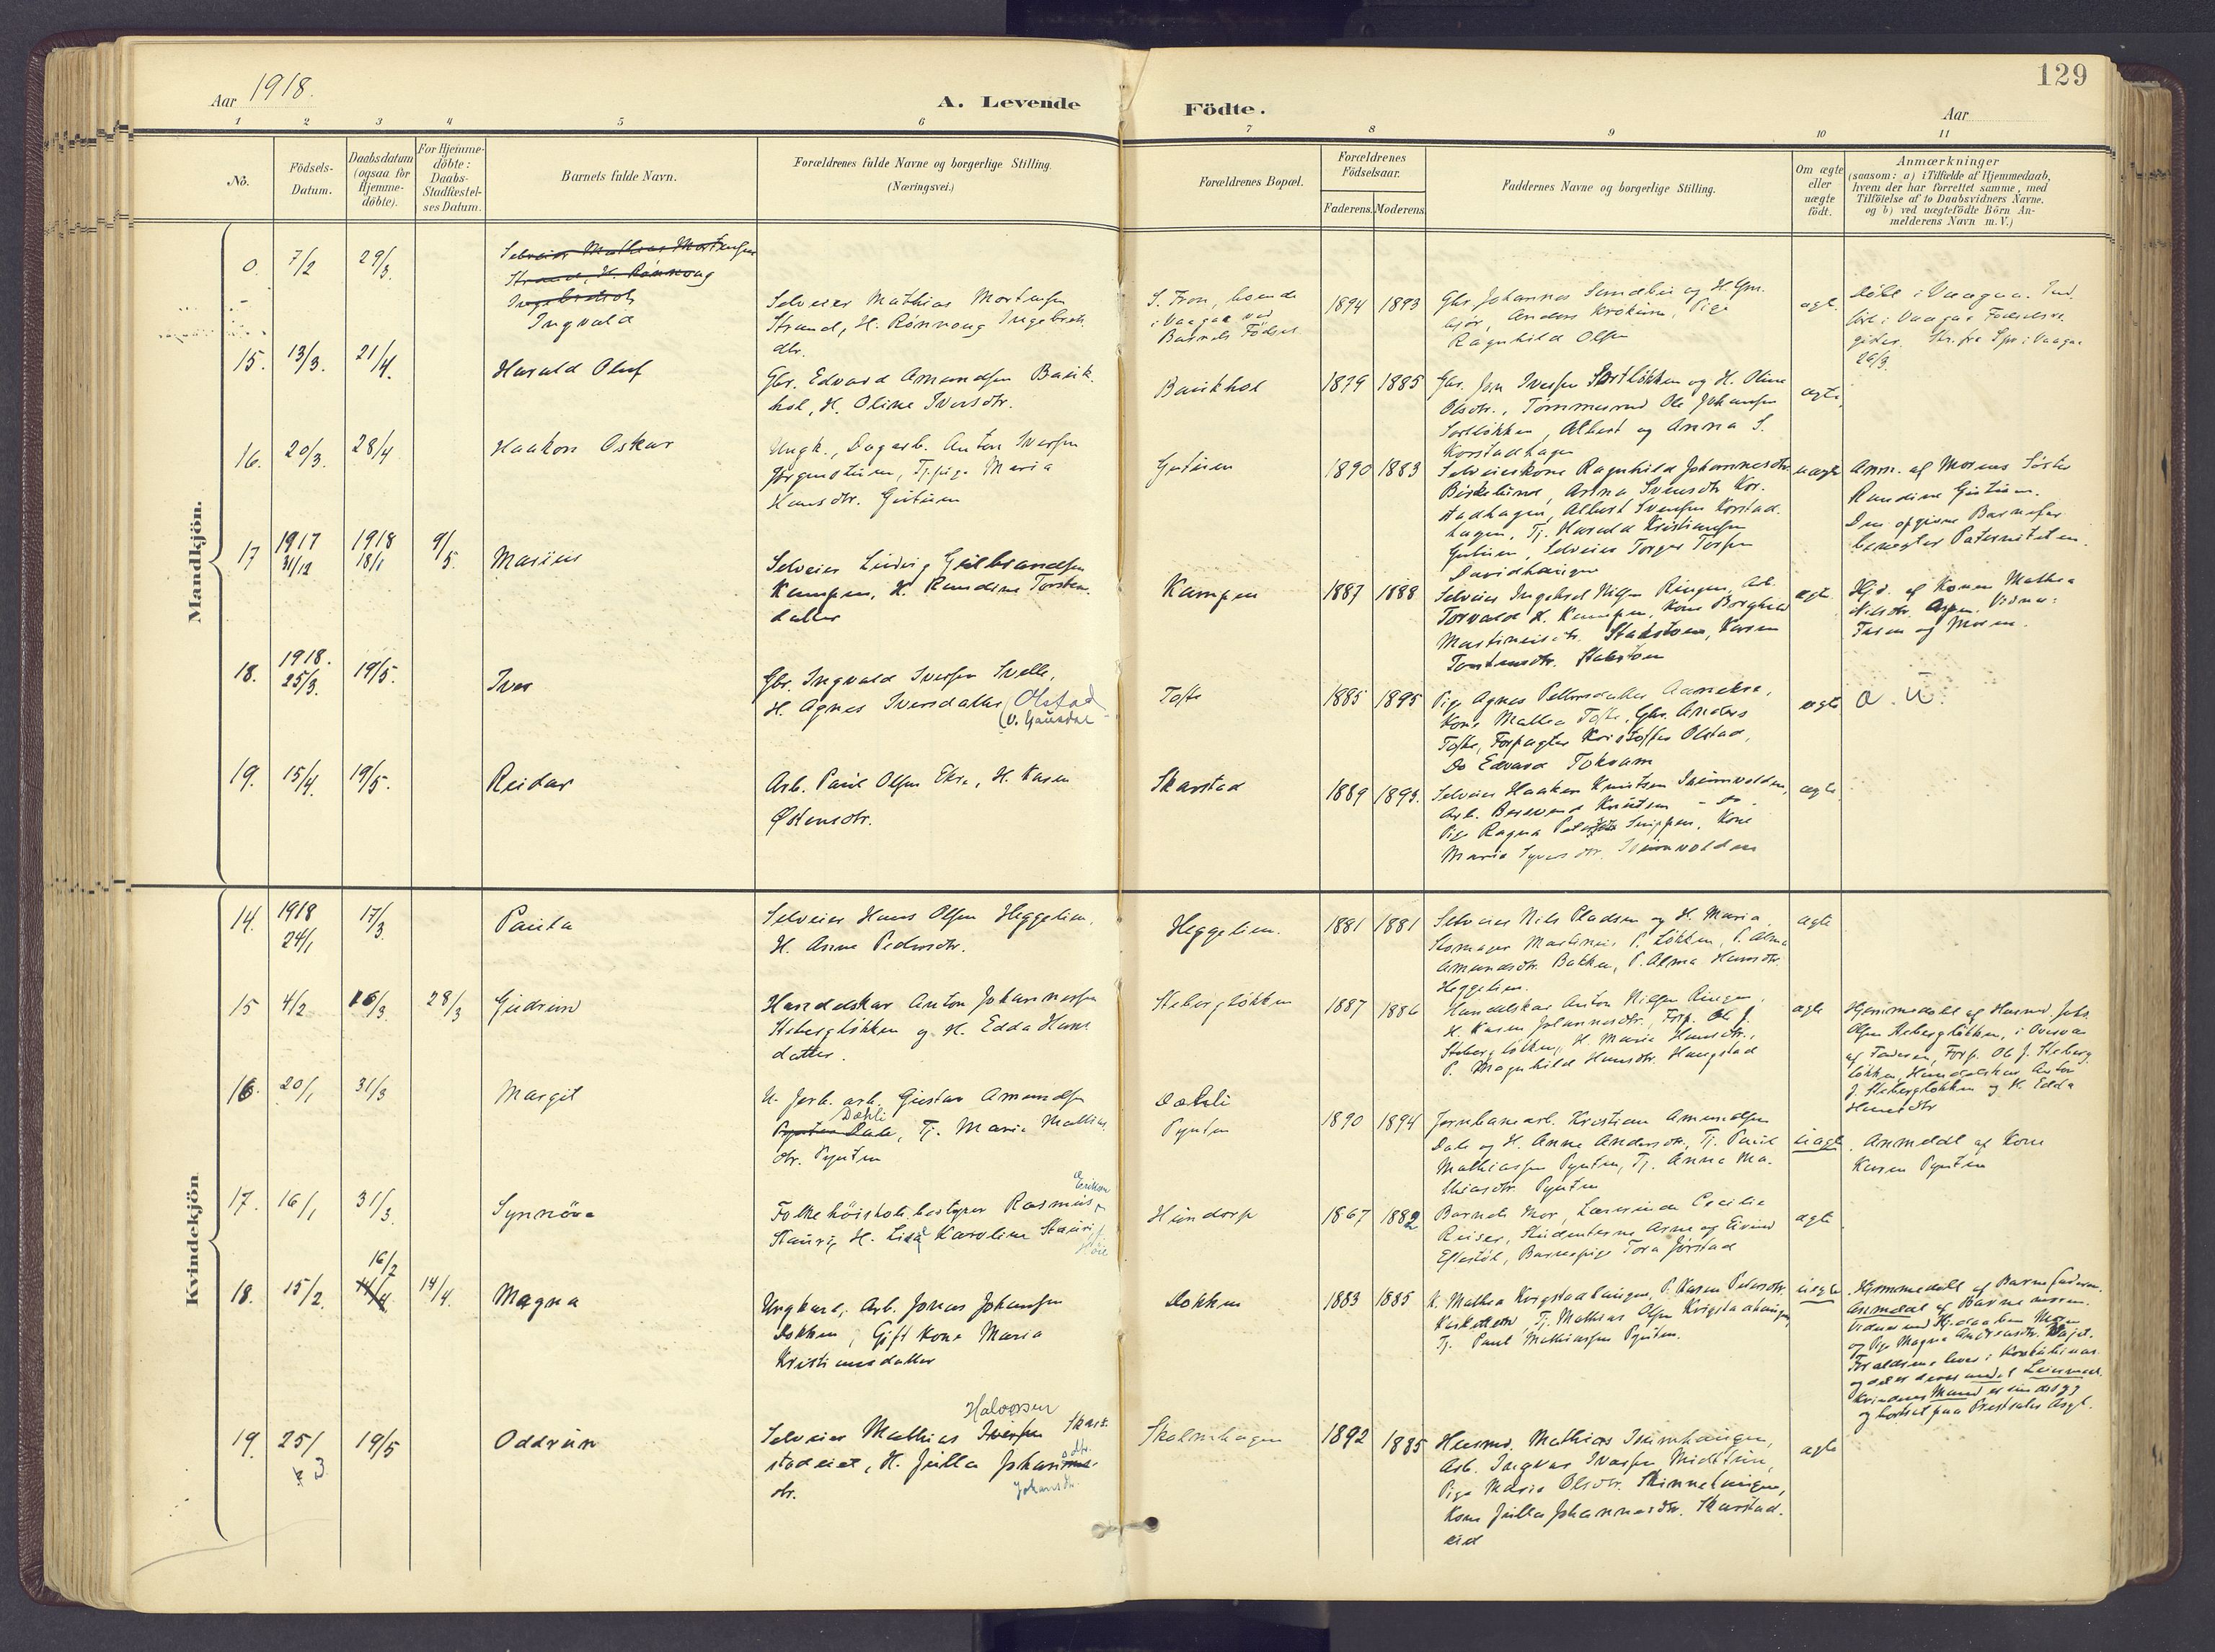 129
Aar 1918.
A. Levende Födte.
Aar
1 2 3 4 5 6 7 8 9 10 11
No.
Födsels-
Datum.
Daabsdatum
(ogsaa for
Hjemme-
döbte).
For Hjemme-
döbte:
Daabs-
Stadfæstel-
ses Datum.
Barnets fulde Navn.
Forældrenes fulde Navne og borgerlige Stilling.
(Næringsvei.)
Forældrenes Bopæl.
Forældrenes
Födselsaar.
Faderens. Moderens.
Faddernes Navne og borgerlige Stilling.
Om ægte
eller
uægte
födt.
Anmærkninger
(saasom: a) i Tilfælde af Hjemmedaab,
hvem der har forrettet samme, med
Tilföielse af to Daabsvidners Navne.
og b) ved uægtefödte Börn An-
melderens Navn m. V.)
Mandkjön.
0. 7/2 29/3.
Selveier Mathias Mortensen
Strand, H. Rönnoug
Ingebretsdtr
Ingvald
Selveier Mathias Mortensen
Strand, H. Rönnoug Ingebrets
dtr.
S. Fron, boende
i Vaagaa ved
Barnets Födsel
1894 1893
Gbr. Johannes Sundbu og H.
Anders Pige
Ragnhild Olsen
ægt.
Döbt i Vaagaa. Ind.
fört i Vaagaa
Spr. i Vaagaa
26/3.
15. 13/3. 21/4.
Harald Oluf
Gbr. Edvard Amundsen Bauk.
hol, H. Oline Iversdtr.
Baukhol
1879 1885
Gbr. Jon Iversen Sortløkken og H. Oline
Olsdtr., Tömmermd Ole Johansen
Sortløkken, Albert og Anna S.
Korstadhagen
ægte,
16. 20/3. 28/4
Haakon Oskar
Ungk., Dagarb. Anton Iversen
Jörgenstuen, Tj.pige Maria
Hansdtr. Gutuen
Gutuen
1890 1883
Selveierkone Ragnhild Johannesdtr
Birkelund, Anna Svensdtr Kor.
stadhagen, Albert Svensen Korstad.
hagen, Tj. Harald Kristiansen
Gutuen, Selveier Torger Torsen
Davidhaugen
uægte
Anm. af Morens Söster
Randine Gutuen.
Den opgivne Barnefar
benegter Paterniteten.
17 1917 31/12 1918 18/1 9/5.
Marius
Selveier Ludvig Gulbrandsen
Kampen, H. Randine Torsten
datter
Kampen
1887 1888
Selveier Ingebret Nilsen Ringen, Arb.
Torvald H. Kampen, Kone Borghild
Martineusdtr. Stadstuen, Karen
Torstensdtr. Stadstuen
ægte
Hjd. af Konen Mathea
Nilsdtr. Aspen. Vidner:
Faren og Moren.
18. 1918. 25/3. 19/5.
Iver
Gbr. Ingvald Iversen Svelle,
H. Agnes Iversdatter (Olstad
(V. Gausdal
Tofte
1885 1895
Pige Agnes Pettersdatter
Kone Mathea Tofte, Gbr. Anders
Tofte, Forpagter Kristoffer Olstad,
Do Edvard Toksam
ægte
a. u.
19. 15/4. 19/5.
Reidar
Arb. Paul Olsen Ekre, H. Karen
Østensdtr.
Skarstad
1889 1893.
Selveier Haaken Knutsen
Arb. Knutsen - do -
Pige Ragna Snippen, Kone
Maria Syversdtr.
ægte.
Kvindekjön
14. 1918 24/1 17/3.
Paula
Selveier Hans Olsen Heggelien,
H. Anne Pedersdtr.
Heggelien.
1881 1881
Selveier Nils Pladsen og H. Maria.
Skomager Martinus P. Løkken, P. Alma
Amundsdtr. Bakken, P. Alma Hansdtr.
Heggelien.
ægte
15 4/2 16/3 28/3
Gudrun
Handelskar Anton Johannessen
Stebergløkken og H. Edda Hans
datter.
Stebergløkken
1887 1886
Handelskar Anton Nilsen Ringen,
H. Karen Johannesdtr., Forp. Ole J.
Stebergløkken, H. Marie Hansdtr.,
P. Magnhild Hansdtr. Haugstad
ægte
Hjemmedöbt af Husmd. Johs.
Olsen Stebergløkken, i Overvær
af Faderen, Forp. Ole J. Steberg.
løkken, Handelskar Anton
J. Stebergløkken og H. Edda
Hansdtr
16. 20/1 31/3
Margit
U. Jerb. arb. Gustav Amundsen
Dæhli
Pynten Dale, Tj. Marie Mathias.
dtr. Pynten
Dæhli
Pynten
1890 1894
Jernbanearb. Kristian Amundsen
Dale og H. Anne Andersdtr., Tj. Paul
Mathiassen Pynten, Tj. Anna Ma.
thiasdtr Pynten
uægte.
Anmeldt af Kone
Karen Pynten
17. 16/1 31/3.
Synnöve
Eriksen
Folkehöiskolebestyrer Rasmus
Stauri, H. Lisa Karoline Stauri,
f. Höie
Hundorp
1867 1882
Barnets Mor, Lærerinde Cecilie
Reiser, Studenterne Arne og Eivind
Eftestöl, Barnepige Tora Jörstad
ægte
18. 15/2. 16/2 14/4 14/4.
Magna
Ungkarl, Arb. Jonas Johansen
Dokken, Gift Kone Maria
Kristiansdatter
Dokken
1883 1885
K. Mathea Kvigstadhaugen, P. Karen Pedersdtr.
Tj. Mathias Olsen Kvigstadhaugen,
Tj. Paul Mathiassen Pynten.
uægte
Hjemmedöbt af Barnefaderen.
Anmeldt af Barnemoren.
Vidner ved Hj.daaben Moren
og Pige Magna Andreasdtr.
Forældrene lever i Konkubinat
og det er deres andet Leiermaal.
Kvindens Mand er sindssyg
og bortsat paa Prestseter Asyl.
19. 25/3 19/5
Oddrun
Halvorsen
Selveier Mathias Iversen Skar.
stadeiet, H. Julla Johannes
dtr.
Johansdtr.
Skolmhagen
1892 1885
Husmd. Mathias
Arb. Ingvar Iversen Midttun,
Pige Maria Olsdtr. Skinnehaugen,
Kone Julla Johannesdtr. Skarstad.
eid
ægte